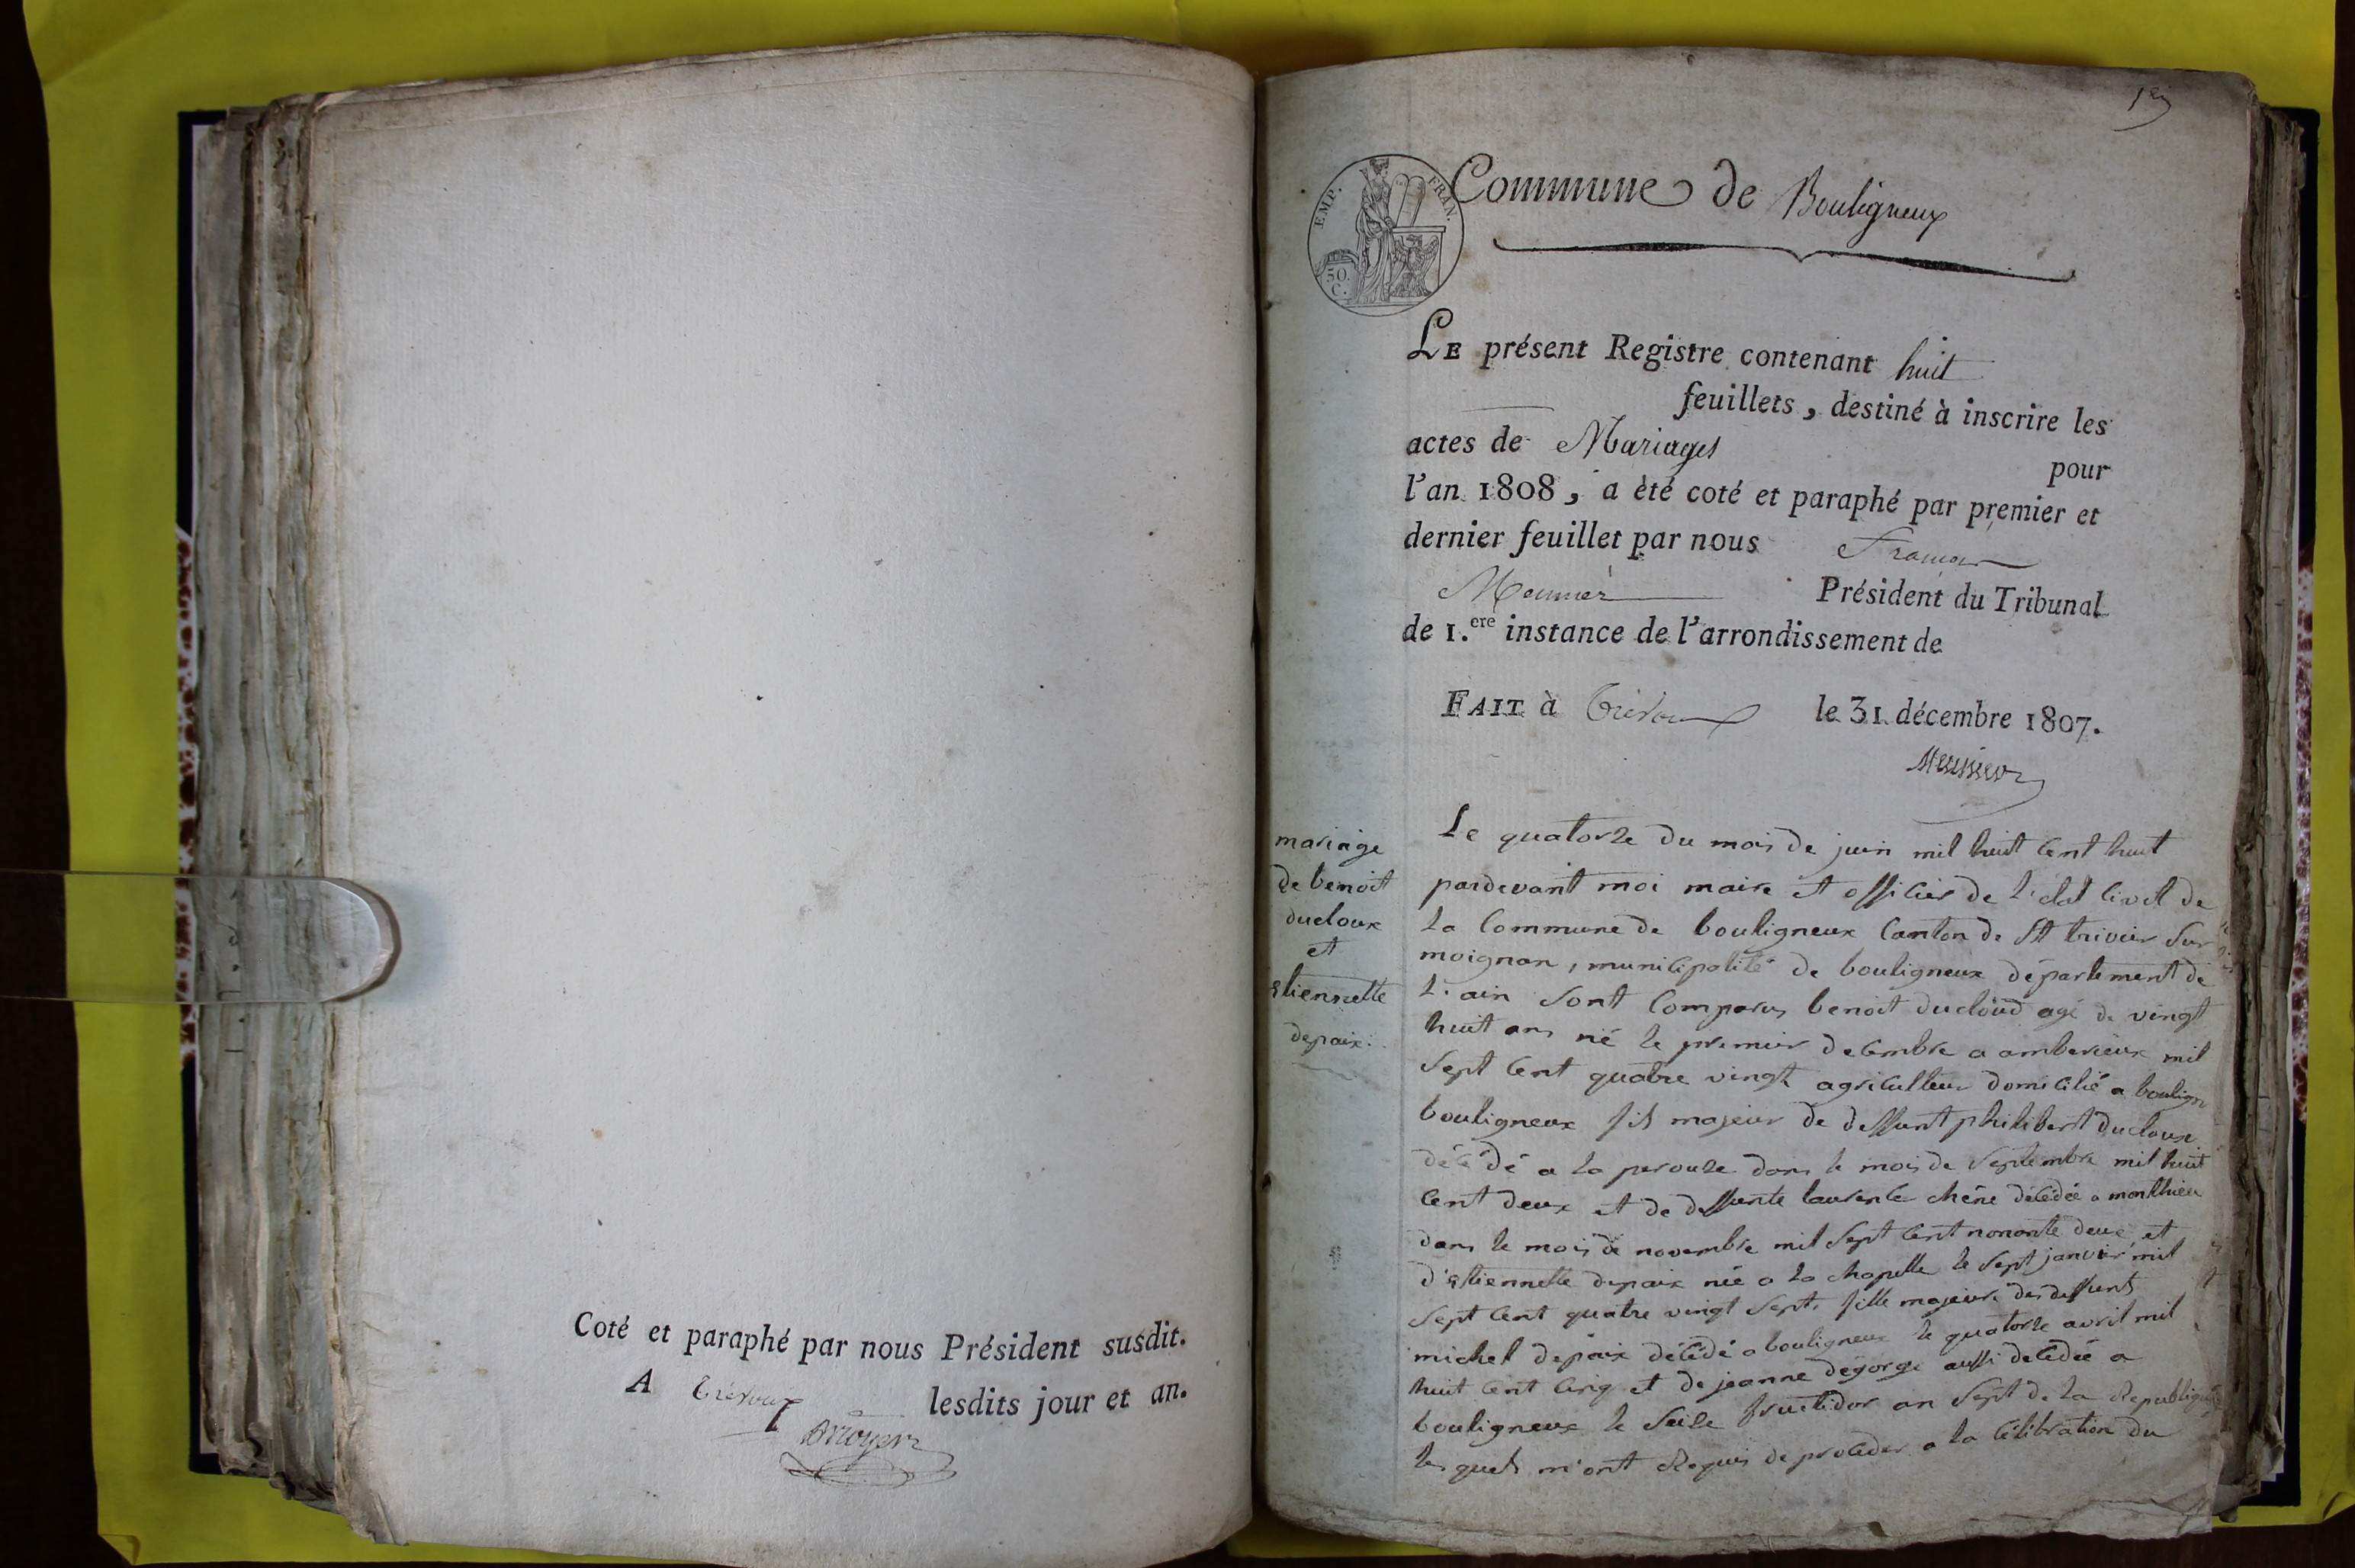 Coté et paraphé par nous Président susdit.
A Trévoux lesdits jour et an.
1er
EMP. FRAN.
50.
C.
Commune de Bouligneux
LE présent Registre contenant huit
feuillets, destiné à inscrire les
actes de Mariages
pour
l'an 1808, a été coté et paraphé par premier et
dernier feuillet par nous
Meunier Président du Tribunal
de 1.ere instance de l'arrondissement de
FAIT à Trévoux le 31 décembre 1807.
Meunier
mariage
de benoit
ducloux
et
etiennette
depaix.
Le quatorze du mois de juin mil huit cent huit
pardevant moi maire et officier de l'etat civil de
la Commune de bouligneux Canton de St trivier sur
moignan, municipalité de bouligneux département de
l'ain sont Comparus benoit ducloud agé de vingt
huit ans né le premier decembre a amberieux mil
sept cent quatre vingt agriculteur domicilié a bouligne
bouligneux fils majeur de deffunt philibert ducloux
décédé a la perouze dans le mois de septembre mil huit
cent deux et de deffunte laurence chêne décédée a monthieu
dans le mois de novembre mil sept cent nonante deux, et
d'etiennette depaix née a la chapelle le sept janvier mil
sept cent quatre vingt sept, fille majeure des deffunts
michel depaix décédé a bouligneux le quatorze avril mil
huit cent cinq et de jeanne degorge aussi décédée a
bouligneux le seize fructidor an sept de la Republique
lesquels m'ont Requis de proceder a la célébration du